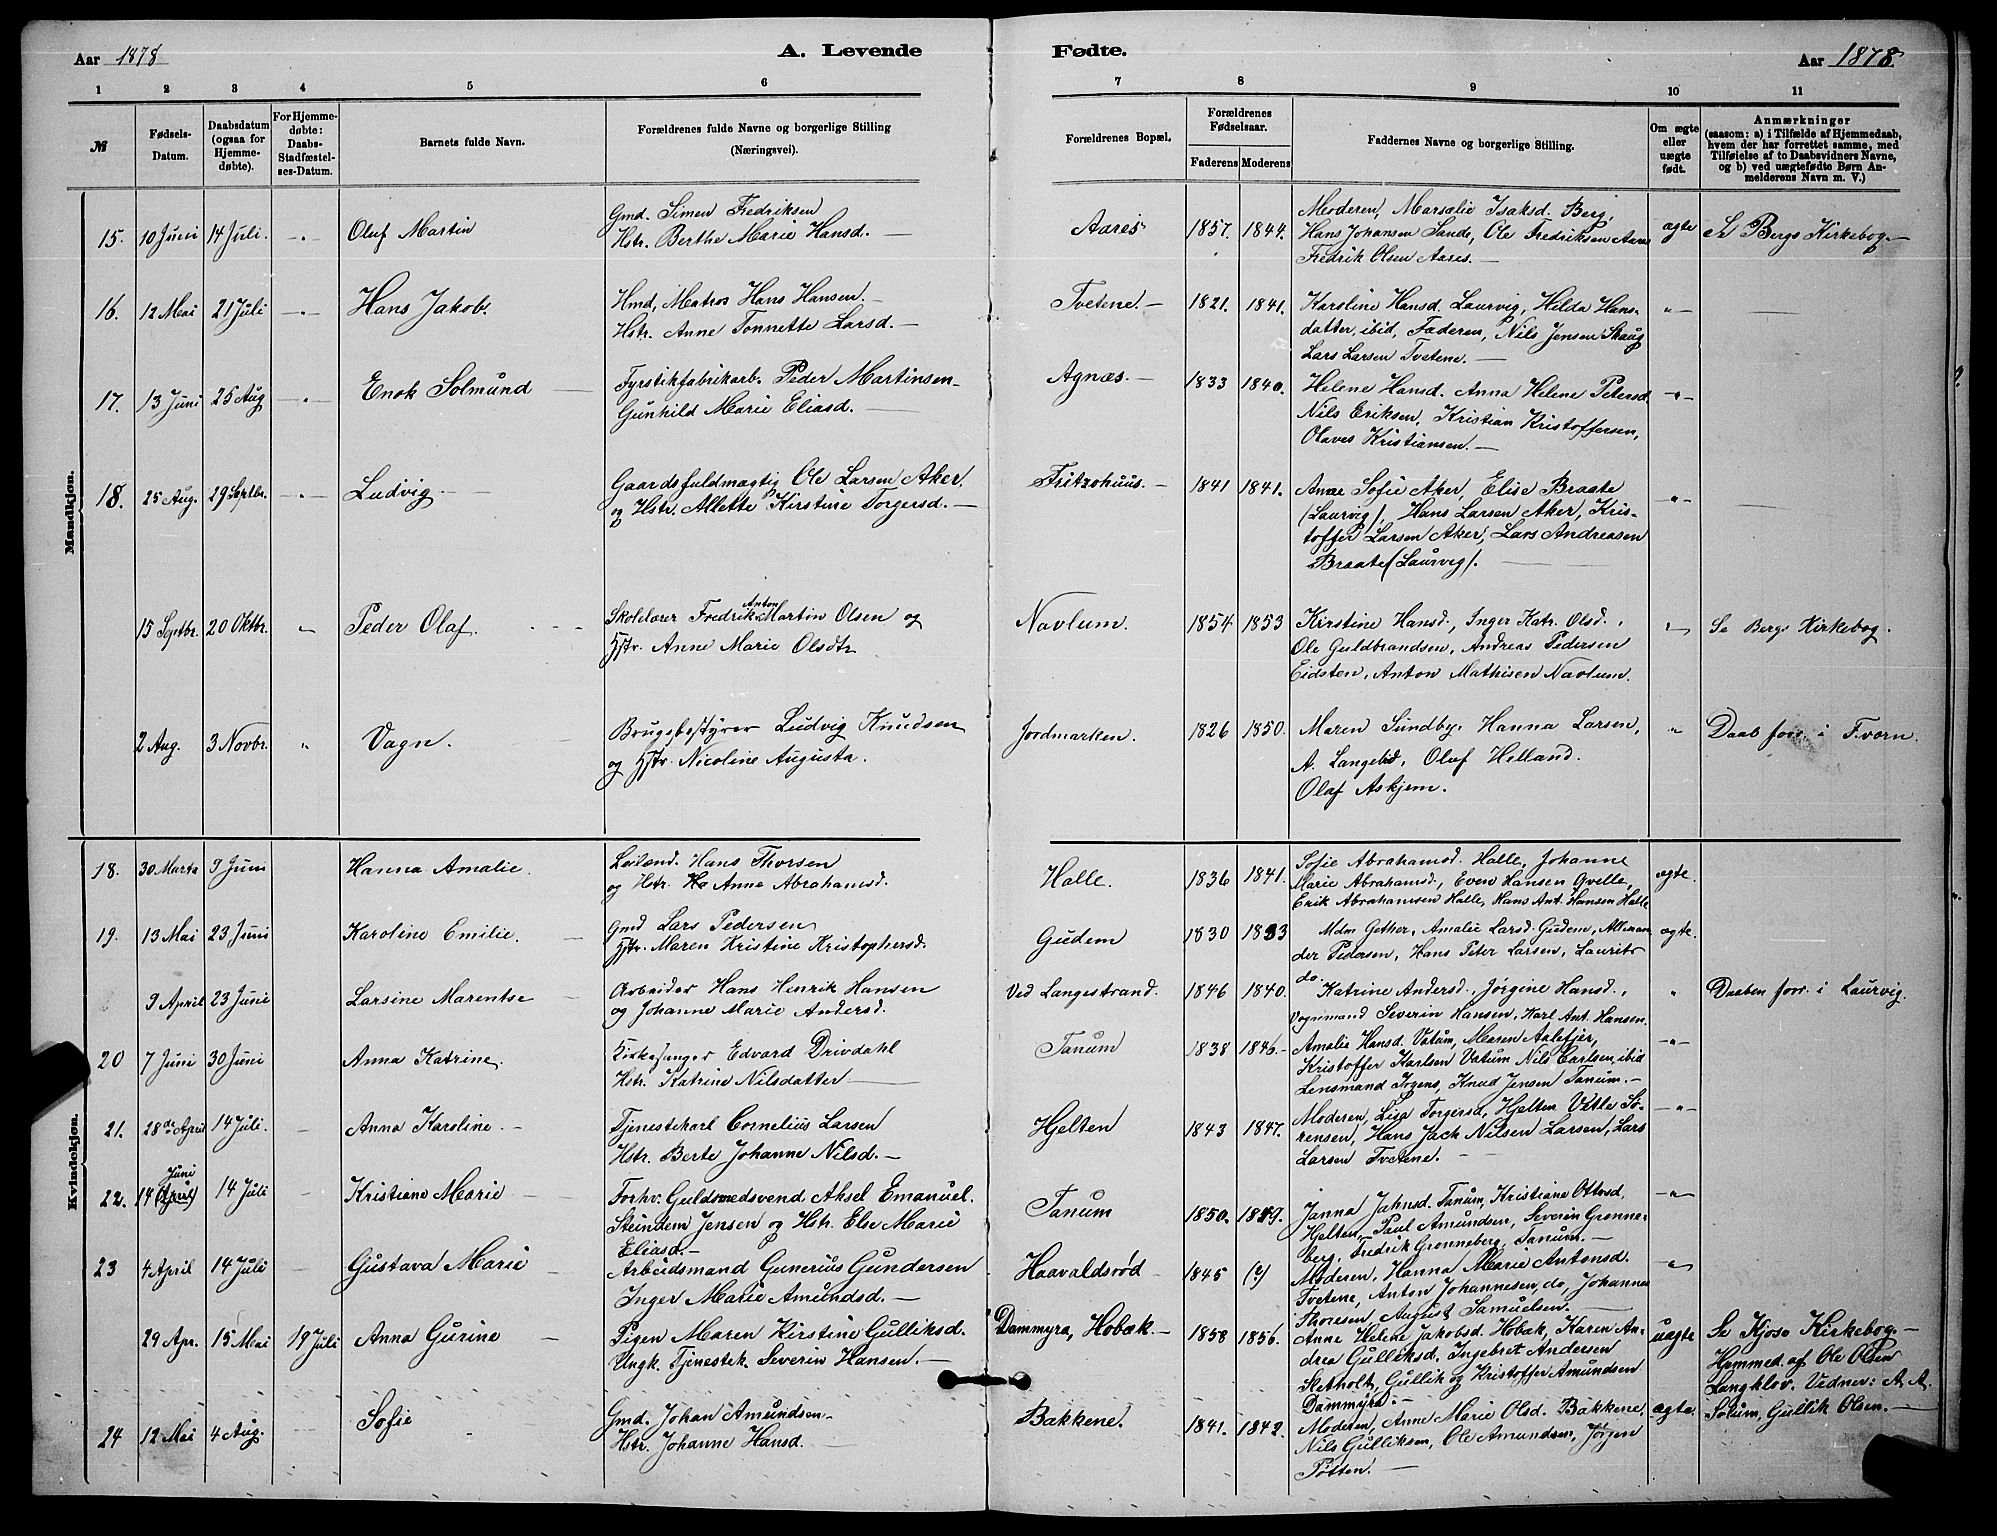 Aar 1878
A. Levende
Fødte.
Aar 1878.
1 2 3 4 5 6 7 8 9 10 11
№
Fødsels-
Datum.
Daabsdatum
(ogsaa for
Hjemme-
døbte).
For Hjemme-
døbte:
Daabs-
Stadfæstel-
ses-Datum.
Barnets fulde Navn.
Forældrenes fulde Navne og borgerlige Stilling
(Næringsvei).
Forældrenes Bopæl.
Forældrenes
Fødselsaar.
Faderens Moderens
Faddernes Navne og borgerlige Stilling.
Om ægte
eller
uægte
født.
Anmærkninger
(saasom: a) i Tilfælde af Hjemmedaab,
hvem der har forrettet samme, med
Tilføielse af to Daabsvidners Navne,
og b) ved uægtefødte Børn An-
melderens Navn m. V.)
Mandkjøn.
15. 10 Juni 14 Juli. -„- Oluf Martin
Gmd. Simen Fredriksen
Hstr. Berthe Marie Hansd. —
Aares 1857. 1844.
Moderen, Marsælie Isaksd. Berg,
Hans Johansen Sande, Ole Fredriksen Aares
Fredrik Olsen Aares. —
ægte Se Bergs Kirkebog. —
16. 12 Mai 21 Juli -„- Hans Jakob.
Hmd, Matros Hans Hansen. —
Hstr. Anne Tonnette Larsd. —
Tvetene. — 1821. 1841.
Karoline Hansd. Laurvig, Hilda Hans-
datter, ibid, Faderen, Nils Jensen Skaug
Lars Larsen Tvetene. —
„-
17. 13 Juni 25 Aug -„- Enok Solmund
Fyrstikfabrikarb. Peder Martinsen -
Gunhild Marie Eliasd. —
Agnæs. — 1833 1840.
Helene Hansd. Anna Helene Petersd.
Nils Eriksen, Kristian Kristoffersen,
Olaves Kristiansen. —
-„- —
18. 25 Aug. 29 Septbr. -„- Ludvig. —
Gaardsfuldmægtig Ole Larsen Aker.
og Hstr. Allette Kirstine Torgersd. —
Fritzøhuus. — 1841 1841.
Anne Sofie Aker, Elise Braate
(Laurvig), Hans Larsen Aker, Kris-
toffer Larsen Aker, Lars Andreasen
Braate (Laurvig).
-„- —
15 Septbr. 20 Oktbr. „ Peder Olaf.
Skolelærer Fredrik Anton Martin Olsen og
Hstr. Anne Marie Olsdtr
Navlum. 1854 1853
Kirstine Hansd., Inger Katr. Olsd.,
Ole Guldbrandsen, Andreas Pedersen
Eidsten, Anton Mathisen Navlum.
„ Se Bergs Kirkebog.
2 Aug. 3 Novbr. „ Vagn.
Brugsbestyrer Ludvig Knudsen
og Hstr. Nicoline Augusta.
Jordmarken. 1826 1850.
Maren Sundby, Hanna Larsen,
A. Langelid, Oluf Helland.
Olaf Askjem.
„ Daab forr. i F.værn.
Kvindekjøn.
18. 30 Marts 9 Juni Hanna Amalie.
Leilænd. Hans Thorsen
og Hstr. Anne Abrahamsd.
Halle. 1836 1841.
Sofie Abrahamsd. Halle, Johanne
Marie Abrahamsd., Even Hansen Gvelle,
Erik Abrahamsen Halle, Hans Ant. Hansen Halle
ægte.
19. 13 Mai 23 Juni Karoline Emilie. —
Gmd Lars Pedersen
Hstr. Maren Kristine Kristophersd.
Gudem 1830 1833
Mdm Gether, Amalie Larsd. Gudem, Allexan
der Pedersen, Hans Peter Larsen, Laurits
do.
ægte.
9 April 23 Juni Larsine Marentse —
Arbeider Hans Henrik Hansen
og Johanne Marie Andersd.
Ved Langestrand. 1846 1840.
Katrine Andersd., Jørgine Hansd.,
Vognmand Severin Hansen, Karl Ant. Hansen.
„ Daaben forr. i Laurvig.
20 7 Juni 30 Juni Anna Katrine.
Kirkesanger Edvard Drivdahl
Hstr. Katrine Nilsdatter —
Tanum 1838 1846. -
Amalie Hansd. Vatum, Maren Aalefjer,
Kristoffer Karlsen Vatum Nils Carlsen ibid
Lensmand Irgens, Knud Jensen Tanum. —
-„-
21. 28de April 14 Juli. — Anna Karoline. —
Tjenestekarl Cornelius Larsen
Hstr. Berte Johanne Nilsd. —
Hjelten 1843 1847.
Moderen, Lisa Torgersd, Hjelten Vetle Sö-
rensen, Hans Jack Nilsen Larsen, Lars
Larsen Tvetene. —
-„-
22. 14 Juni (April) 14 Juli — Kristiane Marie —
Forhv. Guldsmedsvend Aksel Emanuel
Steindem Jensen og Hstr. Else Marie
Eliasd. —
Tanum 1850. 1849.
Janna Jahnsd. Tanum, Kristiane Ottosd,
Hjelten, Paul Amundsen, Severin Grønne-
berg, Fredrik Grønneberg, Tanum. —
-„-
23 4 April 14 Juli — Gustava Marie —
Arbeidsmand Gunerius Gundersen
Inger Marie Amundsd. —
Haavaldsrød 1845 (?)
Moderen, Hanna Marie Antonsd.
Tvetene, Anton Johannesen, do, Johannes
Thoresen, August Samuelsen. —
-„-
29 Apr. 15 Mai 19 Juli Anna Gurine —
Pigen Maren Kirstine Gulliksd.
Ungk. Tjenestek. Severin Hansen. —
Dammyra, Hobæk. — 1858 1856.
Anne Helene Jakobsd. Hobæk, Karen An-
drea Gulliksd. Ingebret Andersen
Sletholt, Gullik og Kristoffer Amundsen
Dammyra. —
uægte Se Kjose Kirkebog. —
Hjemmed. af Ole Olsen
Langklov. Vidner: A. A.
Solum, Gullik Olsen. —
24 12 Mai 4 Aug. — Sofie
Gmd. Johan Amundsen —
Hstr. Johanne Hansd. —
Bakkene. 1841. 1842.
Moderen, Anne Marie Olsd. Bakkene,
Nils Gulliksen, Ole Amundsen, Jørgen
Pötten. —
ægte.